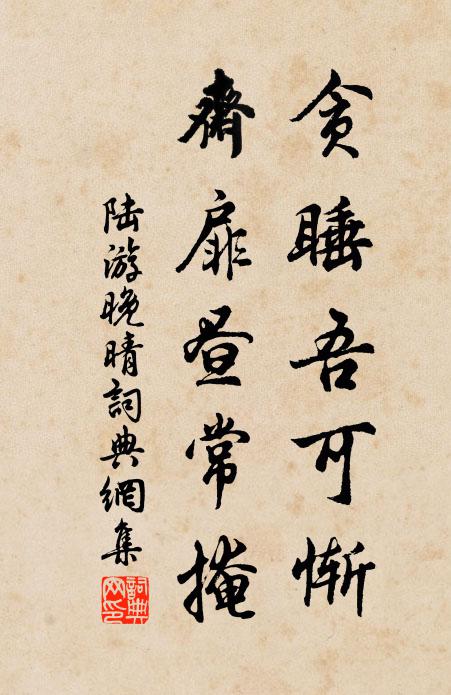 贪睡吾可惭
齋扉昼常掩
陆游晚晴詞典網集
詞典网印